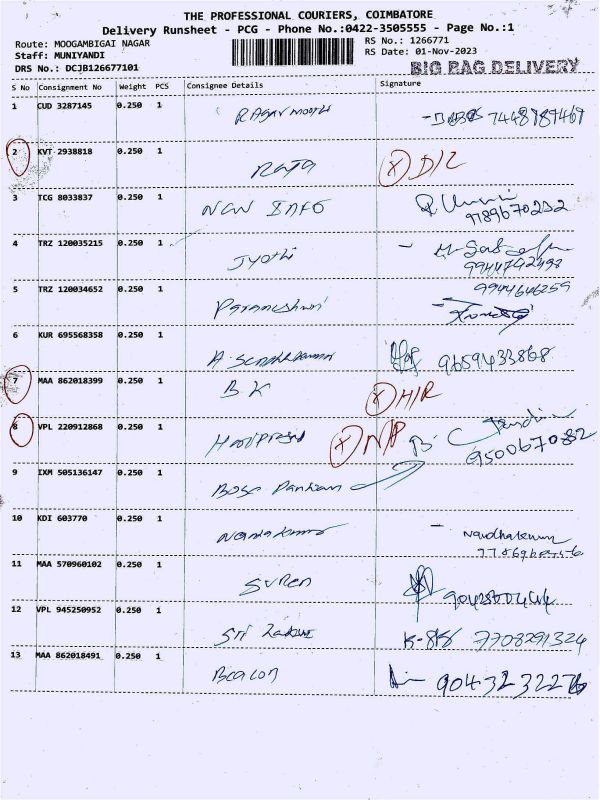 THE PROFESSIONAL COURIERS, COIMBATORE
Delivery Runsheet - PCG - Phone No.:0422-3505555 - Page No.:1
Route: MOOGAMBIGAI NAGAR RS No.: 1266771
Staff: MUNIYANDI RS Date: 01-Nov-2023
DRS No.: DCJB126677101 BIG BAG DELIVERY
S No Consignment No Weight PCS Consignee Details Signature
1 CUD 3287145 0.250 1 7448989469
2 KVT 2938818 0.250 1 Raja X D/L
3 TCG 8033837 0.250 1 New Info 9789670252
4 TRZ 120035215 0.250 1 Jyothi 9944742498
5 TRZ 120034652 0.250 1 Parameshwri 9944646259
6 KUR 695568358 0.250 1 9659433868
7 MAA 862018399 0.250 1 B K X H/R
8 VPL 220912868 0.250 1 Hariprasad X N/P 950067082
9 IXM 505136147 0.250 1 Bose Pandian
10 KDI 603770 0.250 1 Nandakumar Nandhakumar
11 MAA 570960102 0.250 1 Suren
12 VPL 945250952 0.250 1 Sri 7708291324
13 MAA 862018491 0.250 1 Beacon 9043232276